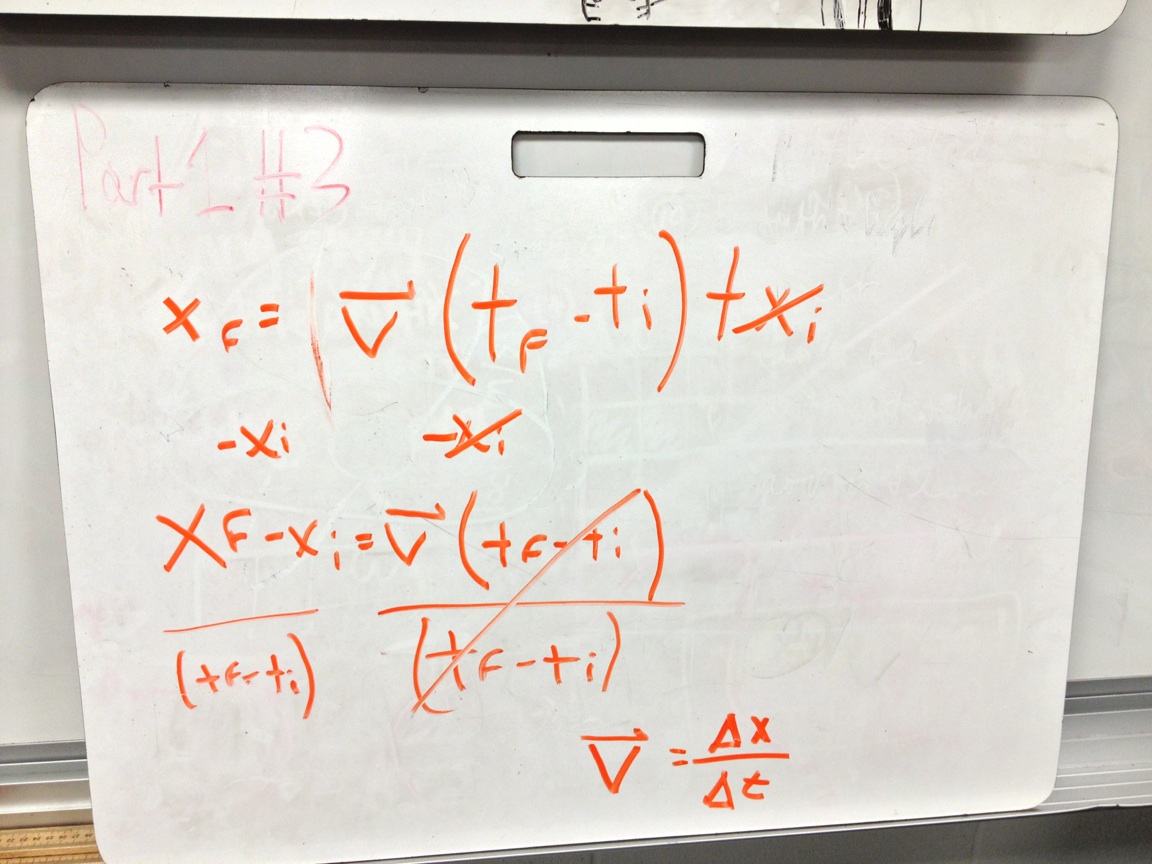 Part 1 #3
x_F = | v⃗ (t_F - t_i) + x_i
-x_i -x_i
x_F - x_i = v⃗ (t_F - t_i)
(t_F - t_i) (t_F - t_i)
v⃗ = Δx/Δt